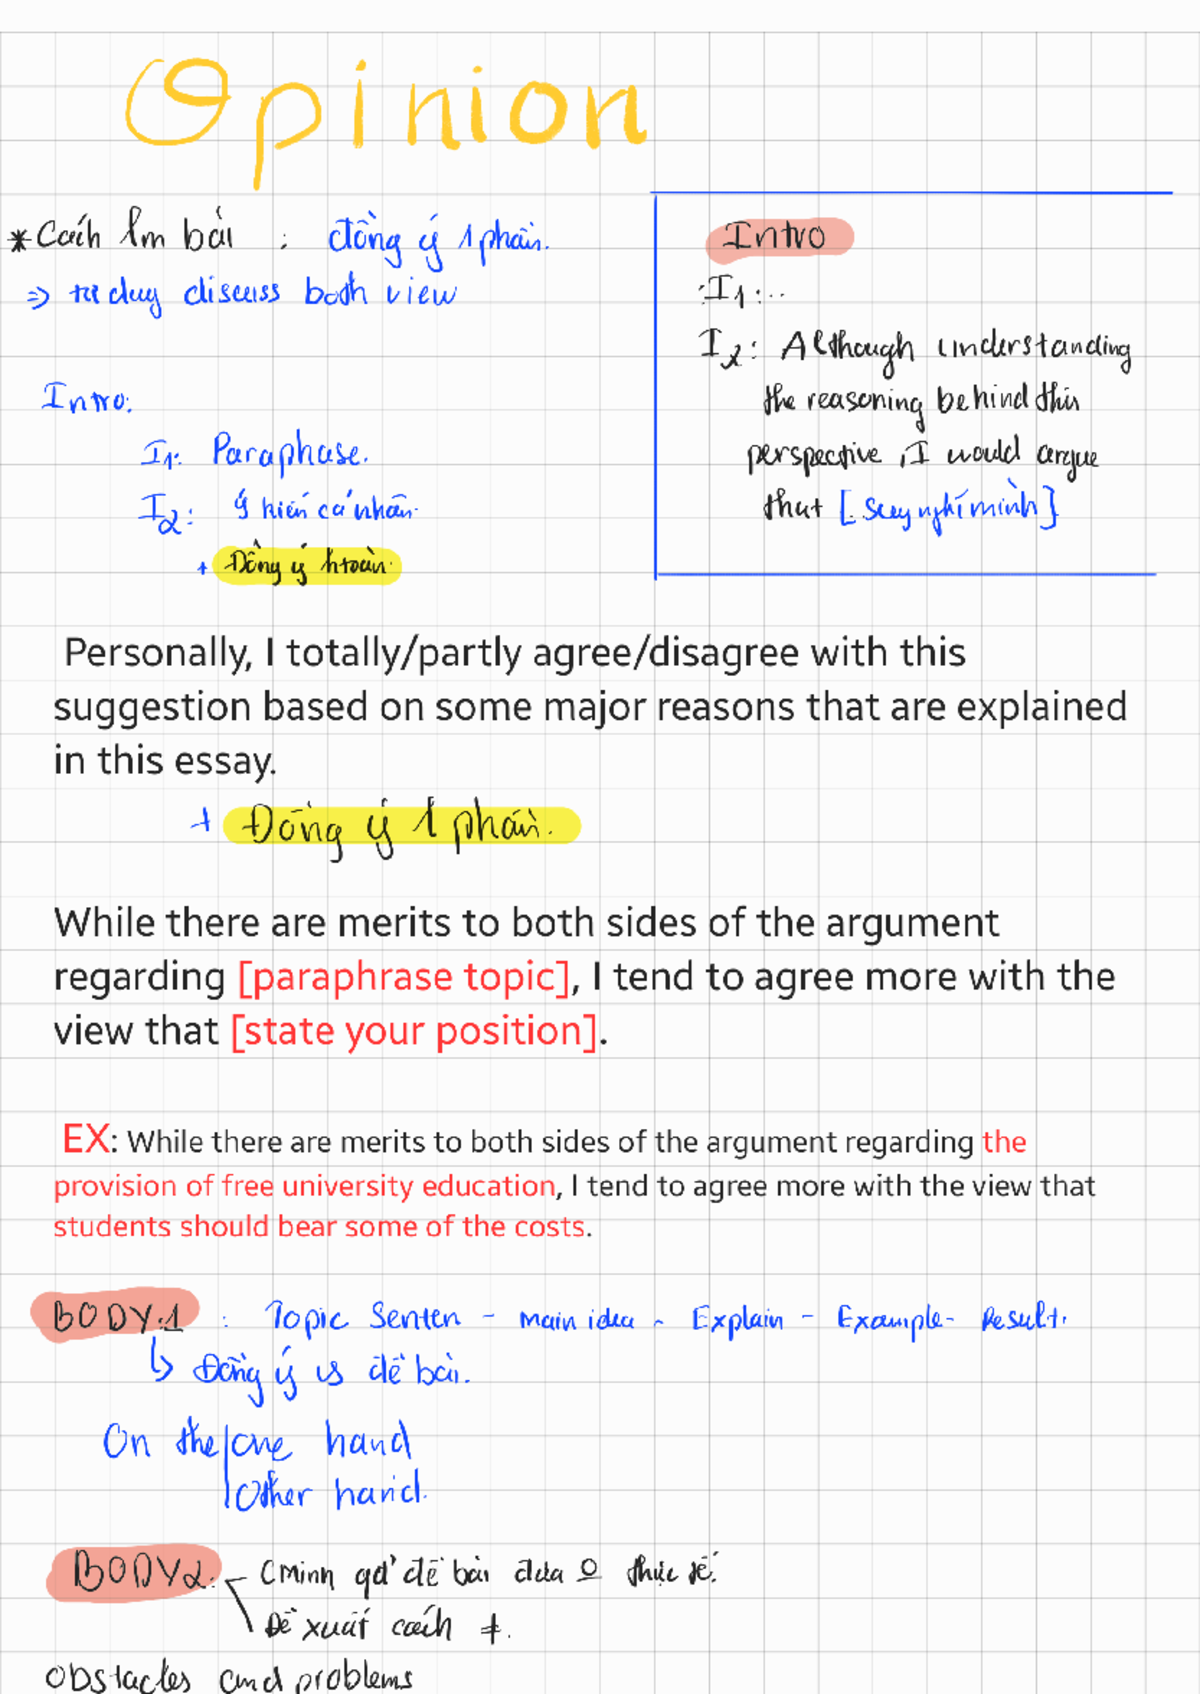 Opinion
*Cách lm bài : đồng ý 1 phần.
=> tư duy discuss both view
Intro:
I1: Paraphase.
I2: Ý kiến cá nhân.
+ Đồng ý htoàn.
Intro
I1:..
I2: Although understanding
the reasoning behind this
perspective, I would argue
that [suy nghĩ mình]
Personally, I totally/partly agree/disagree with this
suggestion based on some major reasons that are explained
in this essay.
+ Đồng ý 1 phần.
While there are merits to both sides of the argument
regarding [paraphrase topic], I tend to agree more with the
view that [state your position].
EX: While there are merits to both sides of the argument regarding the
provision of free university education, I tend to agree more with the view that
students should bear some of the costs.
BODY.1 : Topic Senten - main idea - Explain - Example - Result.
↳ Đồng ý vs đề bài.
On the one hand
other hand.
BODY2: - Cminh qđ' đề bài đưa o thực tế.
Đề xuất cách ≠.
Obstacles and problems